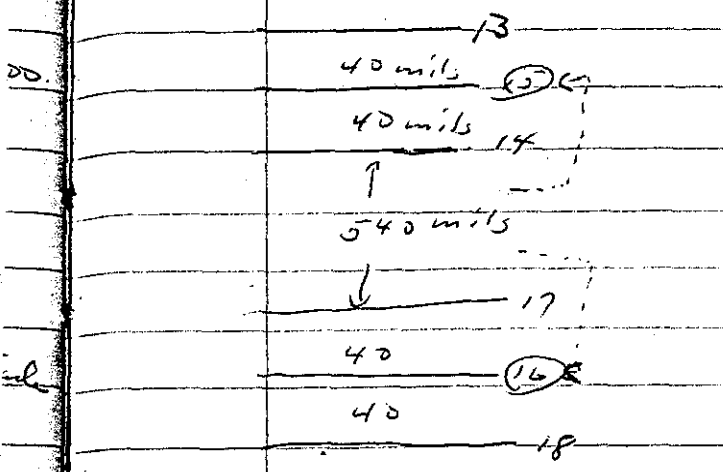 13
00.
40 mils 15
40 mils 14
540 mils
17
40
16
40
18